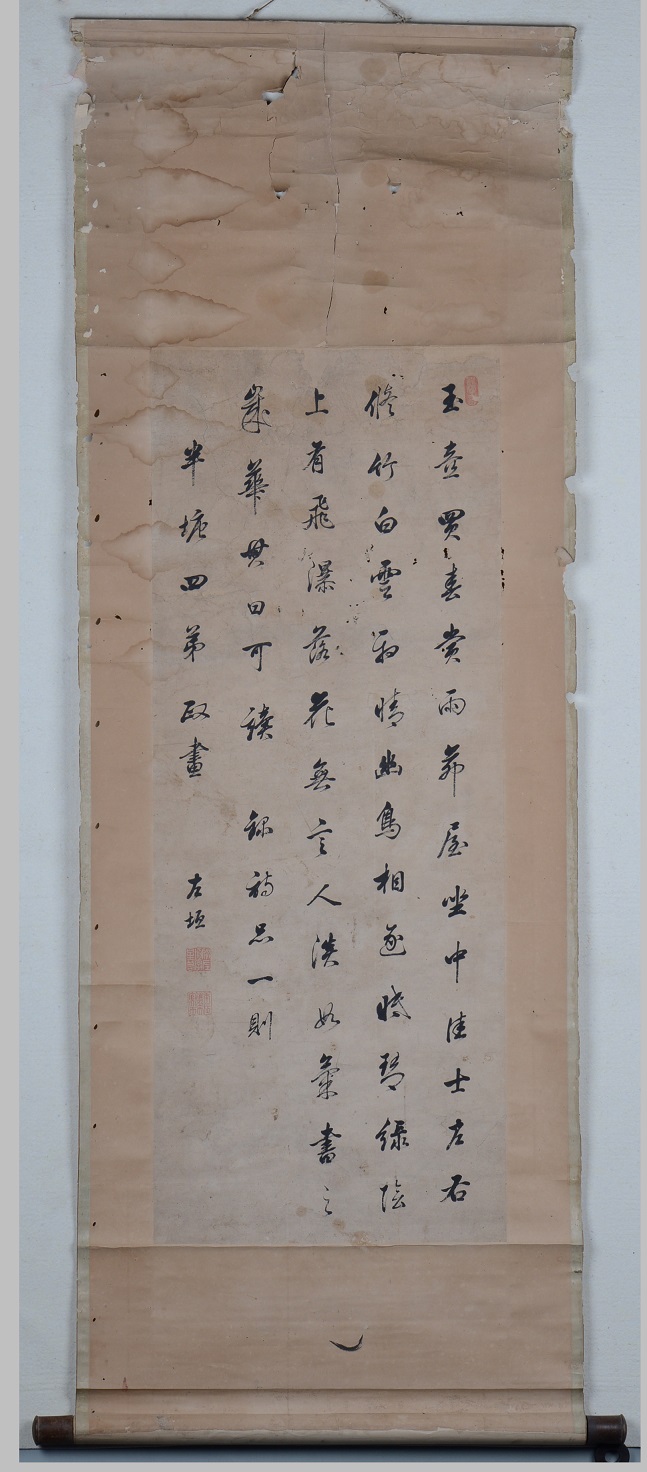 玉壺買春賞雨茆屋坐中佳士左右
脩竹白雲初晴幽鳥相逐眠琴綠陰
上有飛瀑落花無言人淡如菊書之
歲華其曰可讀 錄詩品一則
半塘四弟政畫
左垣